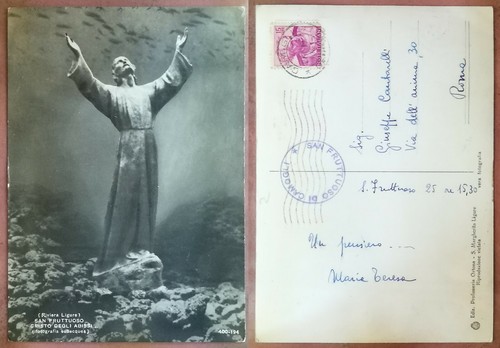 (Riviera Ligure)
SAN FRUTTUOSO
CRISTO DEGLI ABISSI
(fotografia subacquea)
400-124
SAN FRUTTUOSO DI CAMOGLI
Sig.
Giuseppe Cambarelli
Via dell'anima, 30
Roma
S. Fruttuoso 25 ore 15,30
Un pensiero ....
Maria Teresa
Ediz. Profumeria Ortona - S. Margherita Ligure
Riproduzione vietata
vera fotografia